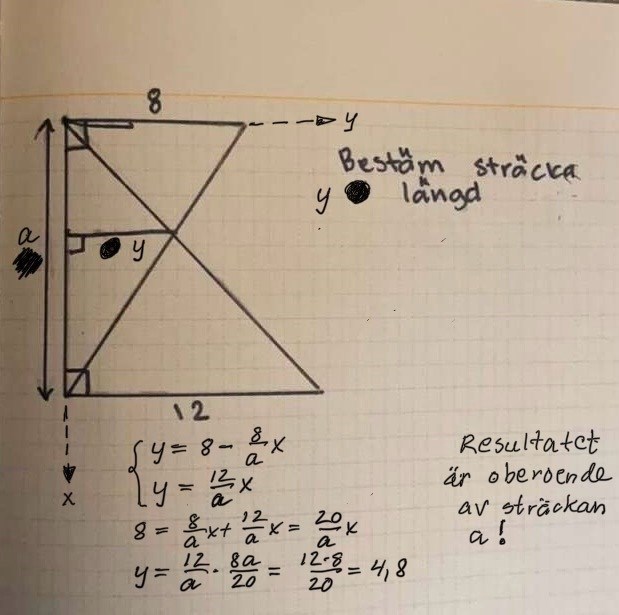 8
y
Bestäm sträcka
y längd
a
y
12
x
y = 8 - 8/a x
y = 12/a x
8 = 8/a x + 12/a x = 20/a x
y = 12/a · 8a/20 = 12·8/20 = 4,8
Resultatet
är oberoende
av sträckan
a!